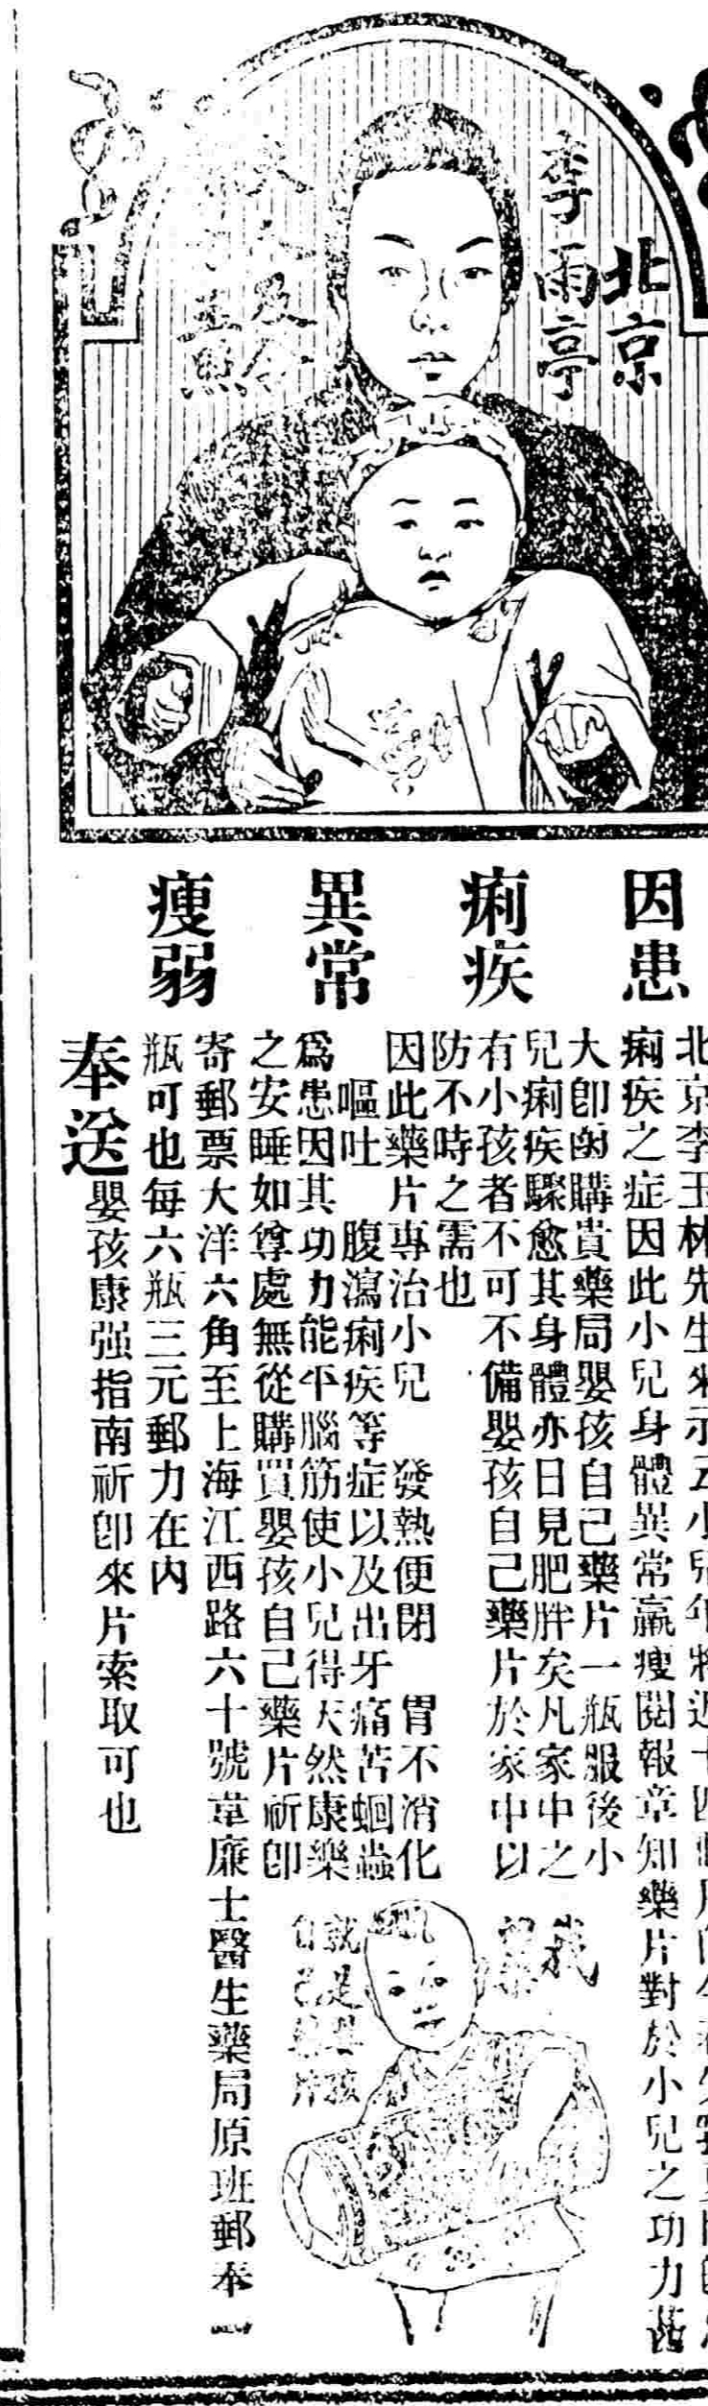 北京
李雨亭
因患
痢疾
異常
瘦弱
北京李玉林先生來示云小兒年將近十四個月
痢疾之症因此小兒身體異常羸瘦閱報章知藥片對於小兒之功力甚
大卽函購貴藥局嬰孩自己藥片一瓶服後小
兒痢疾驟愈其身體亦日見肥胖矣凡家中之
有小孩者不可不備嬰孩自己藥片於家中以
防不時之需也
因此藥片專治小兒 發熱便閉 胃不消化
嘔吐 腹瀉痢疾等症以及出牙痛苦蛔蟲
爲患因其功力能平腦筋使小兒得天然康樂
之安睡如尊處無從購買嬰孩自己藥片祈卽
寄郵票大洋六角至上海江西路六十號韋廉士醫生藥局原班郵奉一
瓶可也每六瓶三元郵力在內
奉送嬰孩康强指南祈卽來片索取可也
我
就是嬰孩
自己藥片